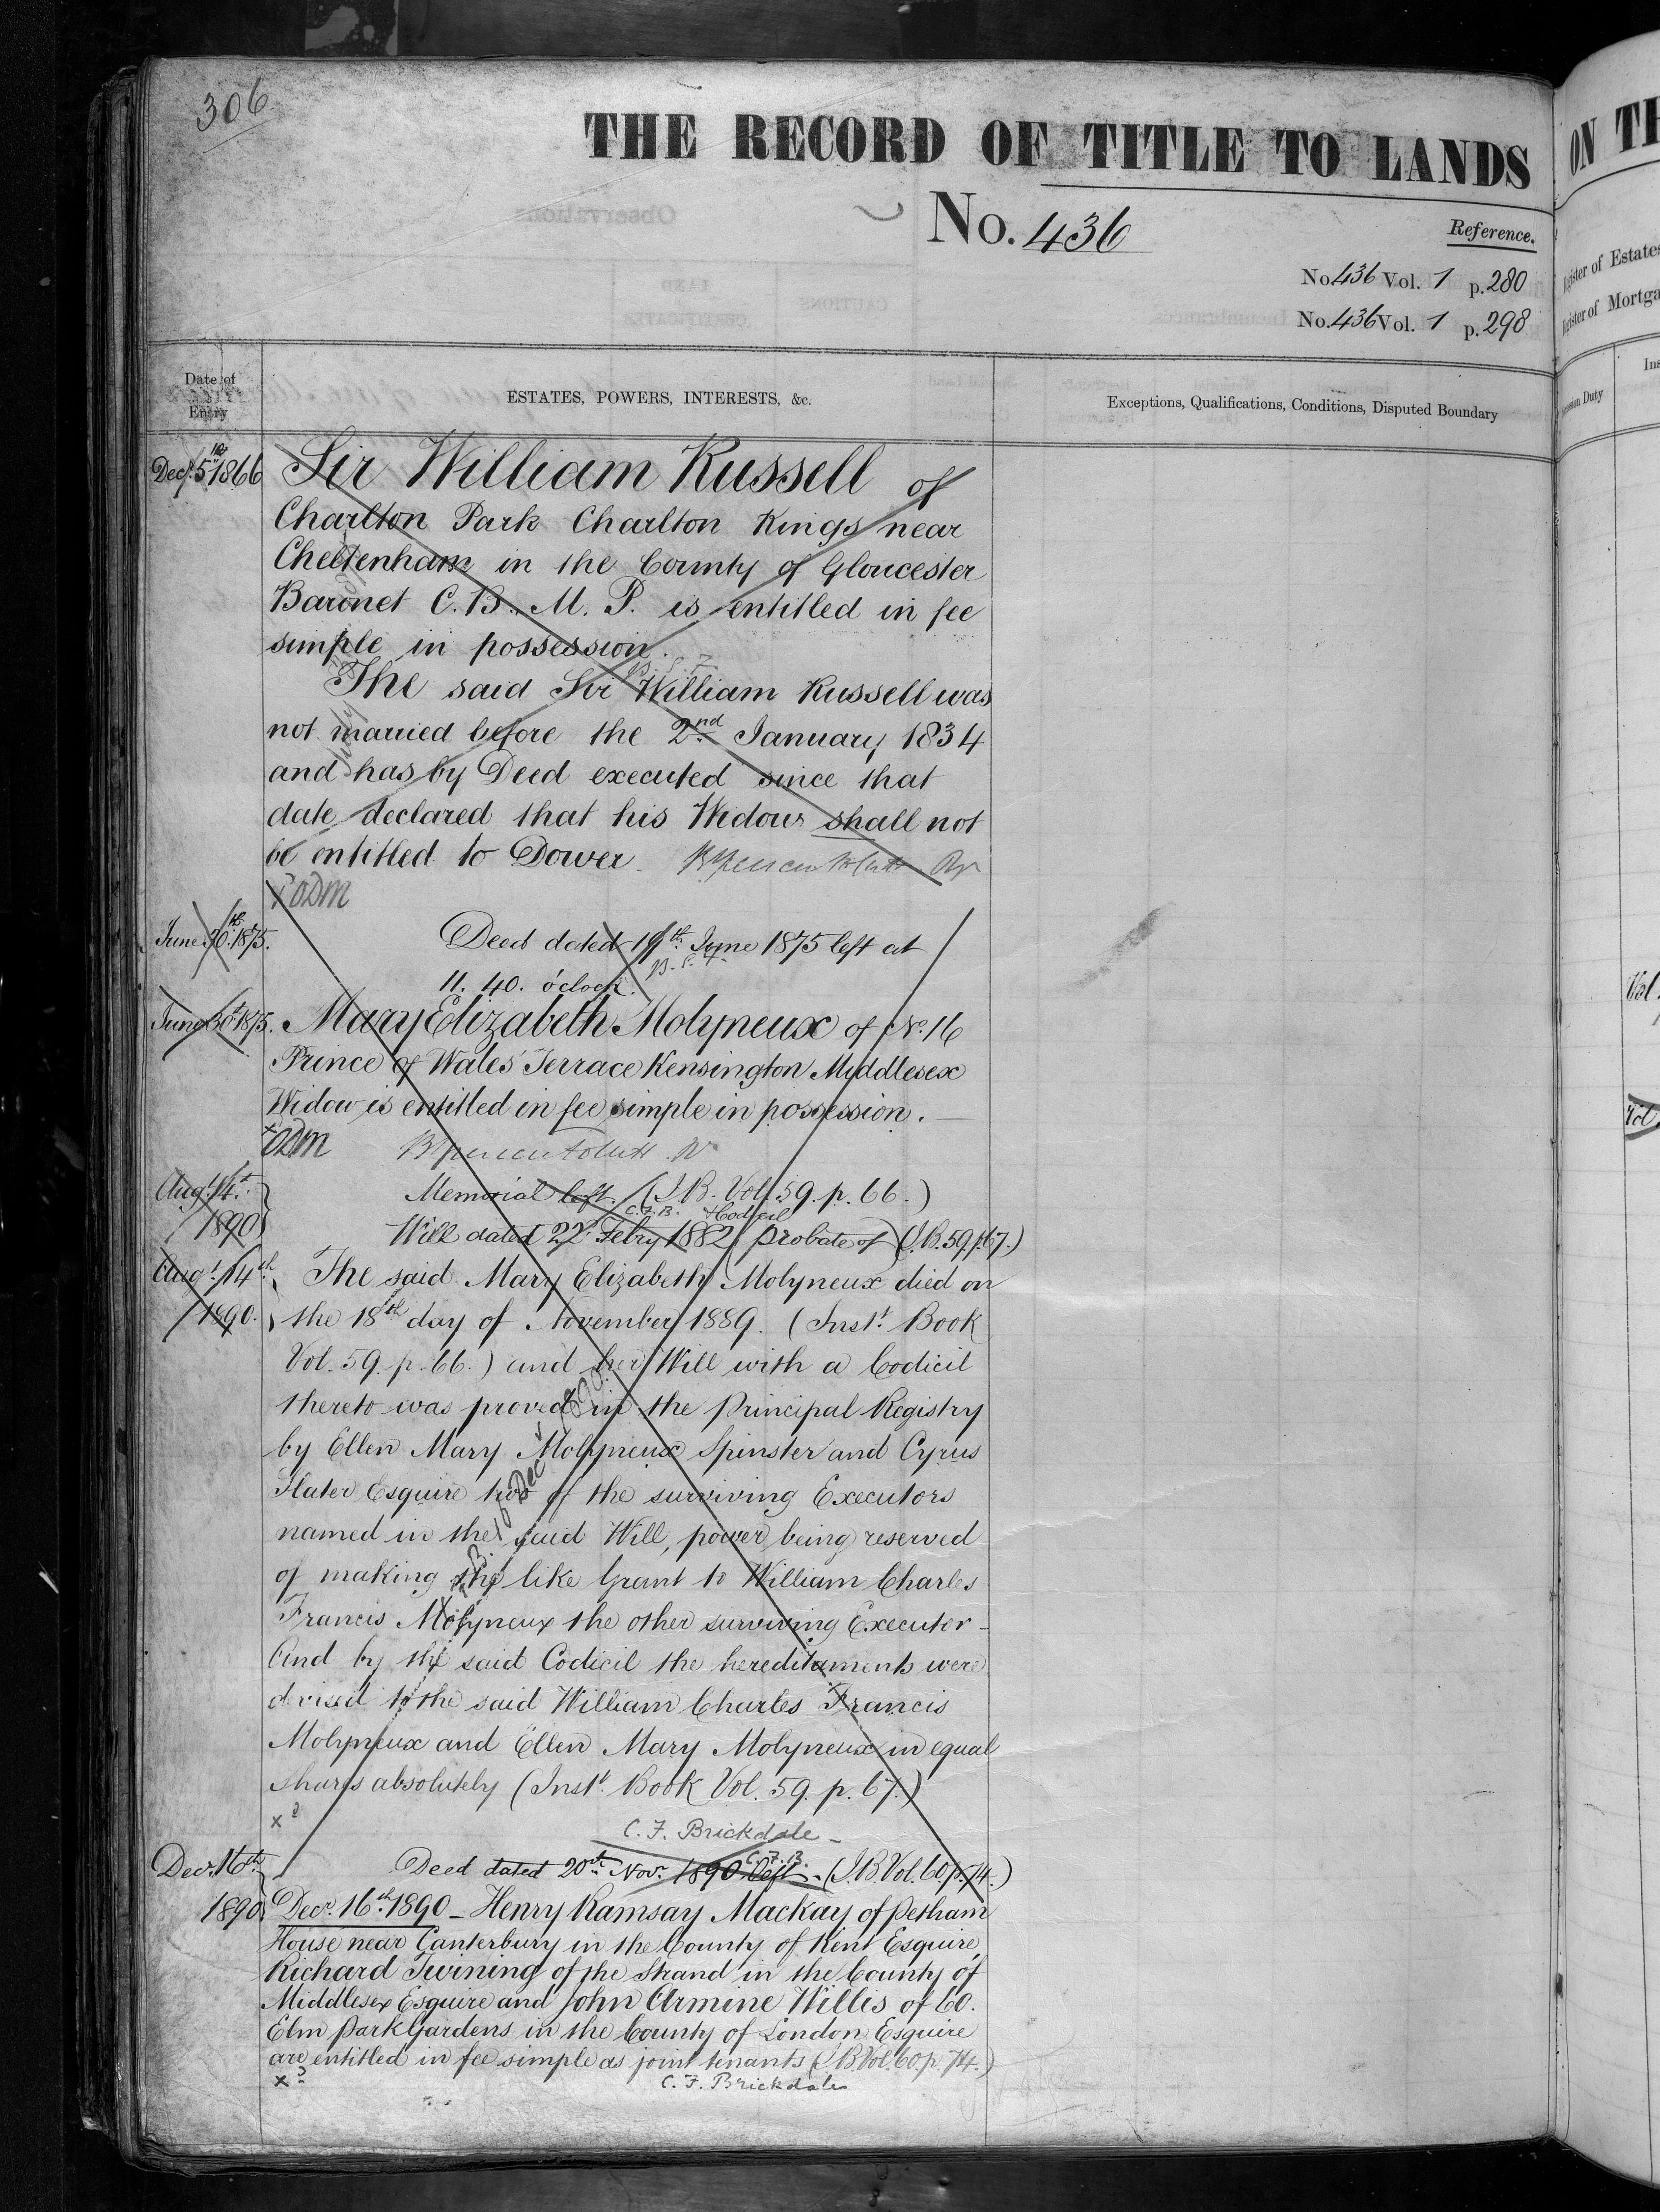 306
THE RECORD OF TITLE TO LANDS
No. 436
Reference.
No. 436 Vol. 1 p. 280
No. 436 Vol. 1 p. 298
Date of Entry
ESTATES, POWERS, INTERESTS, &c.
Exceptions, Qualifications, Conditions, Disputed Boundary
Decr. 5th 1866
Sir William Russell of
Charlton Park Charlton Kings near
Cheltenham in the County of Gloucester
Baronet C.B., M.P. is entitled in fee
simple in possession.
The said Sir William Russell was
not married before the 2nd January 1834
and has by Deed executed since that
date declared that his Widow shall not
be entitled to Dower.
ODM
June 30th 1875.
Deed dated 19th June 1875 left at
11. 40. o'clock.
June 30th 1875.
Mary Elizabeth Molyneux of No. 16
Prince of Wales' Terrace Kensington Middlesex
Widow is entitled in fee simple in possession.
ODM
Augt. 14th 1890
Memorial left. (I.B. Vol. 59. p. 66.)
C.F.B. + Codicil
Will dated 22d Febry 1882 probate of (I.B. 59. p. 67.)
Augt. 14th 1890.
The said Mary Elizabeth Molyneux died on
the 18th day of November 1889. (Inst. Book
Vol. 59. p. 66.) and her Will with a Codicil
thereto was proved in the Principal Registry
by Ellen Mary Molyneux Spinster and Cyrus
Slater Esquire two of the surviving Executors
named in the said Will, power being reserved
of making the like Grant to William Charles
Francis Molyneux the other surviving Executor -
And by the said Codicil the hereditaments were
devised to the said William Charles Francis
Molyneux and Ellen Mary Molyneux in equal
shares absolutely (Inst. Book Vol. 59. p. 67.)
C. F. Brickdale -
Decr. 16th 1890
C.F.B.
Deed dated 20th Novr. 1890 left. (I.B. Vol. 60. p. 74.)
Decr. 16th 1890 - Henry Ramsay Mackay of Petham
House near Canterbury in the County of Kent Esquire,
Richard Twining of the Strand in the County of
Middlesex Esquire and John Armine Willis of 60.
Elm Park Gardens in the County of London Esquire
are entitled in fee simple as joint tenants (I.B. Vol. 60. p. 74.)
C. F. Brickdale
ON TH
Register of Estates
Register of Mortga
Duty
Ins
Vol.
Vol.